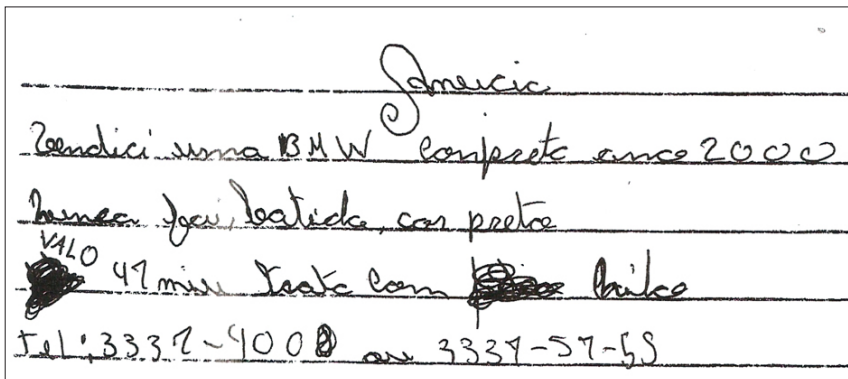 Anuicio
Vendici uma BMW conpreto ano 2000
Nunca foi batido, cor preto
VALO 41 miu trato com
Tel: 3331-400 ou 3331-57-59